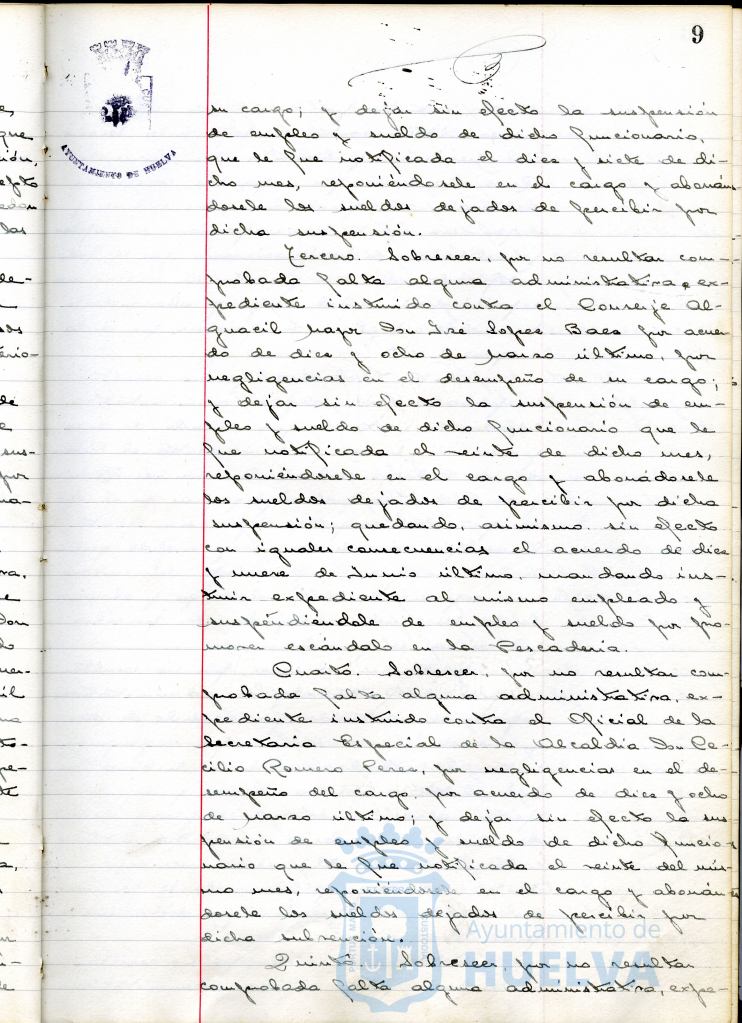 9
AYUNTAMIENTO DE HUELVA
su cargo; y dejar sin efecto la suspensión
de empleo y sueldo de dicho funcionario,
que le fue notificada el diez y siete de di-
cho mes, reponiéndosele en el cargo y abonán-
dosele los sueldos dejados de percibir por
dicha suspensión.
Tercero. Sobreseer, por no resultar com-
probada falta alguna administrativa, ex-
pediente instruido contra el Conserje Al-
guacil mayor Don José Lopez Baez por acuer-
do de diez y ocho de Marzo último, por
negligencias en el desempeño de su cargo;
y dejar sin efecto la suspensión de em-
pleo y sueldo de dicho funcionario que le
fue notificada el veinte de dicho mes,
reponiéndosele en el cargo y abonádosele
los sueldos dejados de percibir por dicha
suspensión; quedando, asimismo, sin efecto
con iguales consecuencias el acuerdo de diez
y nueve de Junio último, mandando ins-
truir expediente al mismo empleado y
suspendiéndole de empleo y sueldo por pro-
mover escándalo en la Pescaderia.
Cuarto. Sobreseer, por no resultar com-
probada falta alguna administrativa, ex-
pediente instruido contra el Oficial de la
Secretaria Especial de la Alcaldía Don Ce-
cilio Romero Perez, por negligencias en el de-
sempeño del cargo, por acuerdo de diez y ocho
de Marzo último; y dejar sin efecto la sus-
pensión de empleo y sueldo de dicho funcio-
nario que le fue notificada el veinte del mis-
mo mes, reponiéndosele en el cargo y abonán-
dosele los sueldos dejados de percibir por
dicha subvención.
Quinto. Sobreseer, por no resultar
comprobada falta alguna administrativa, expe-
Ayuntamiento de
HUELVA